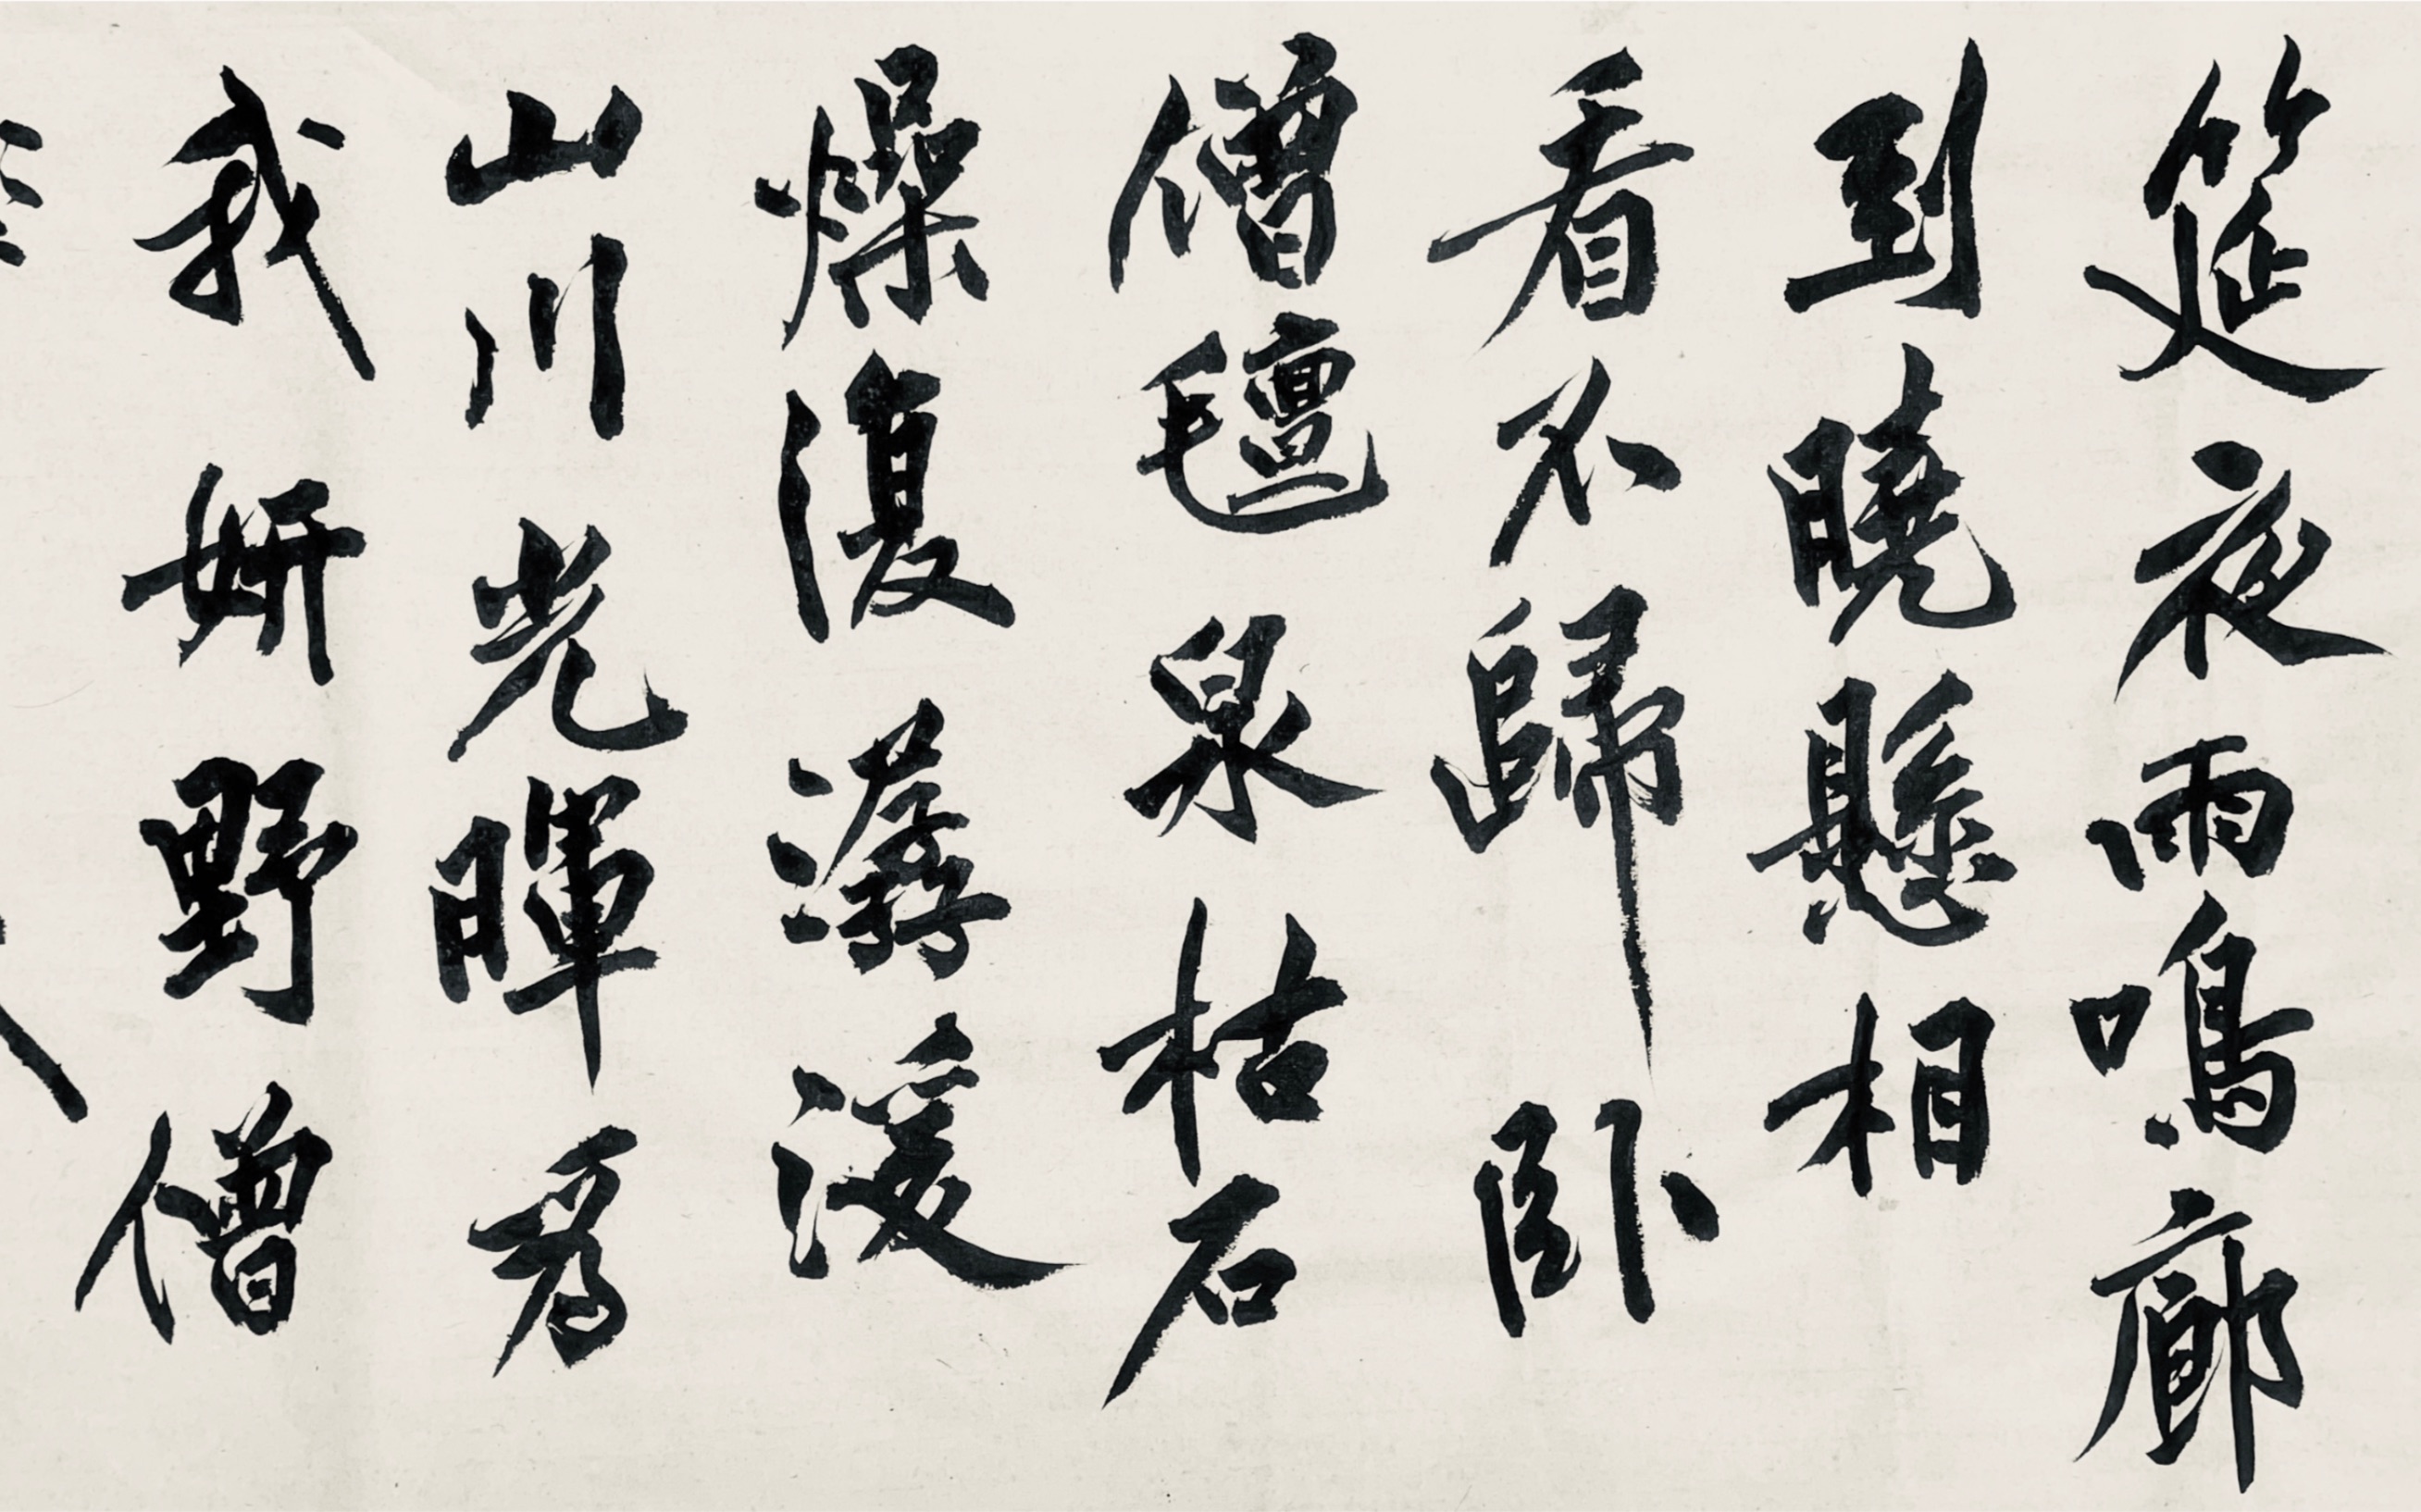 筵夜雨鳴廊
到曉懸相
看不歸臥
僧氊泉枯石
燥復潺湲
山川光暉為
我妍野僧